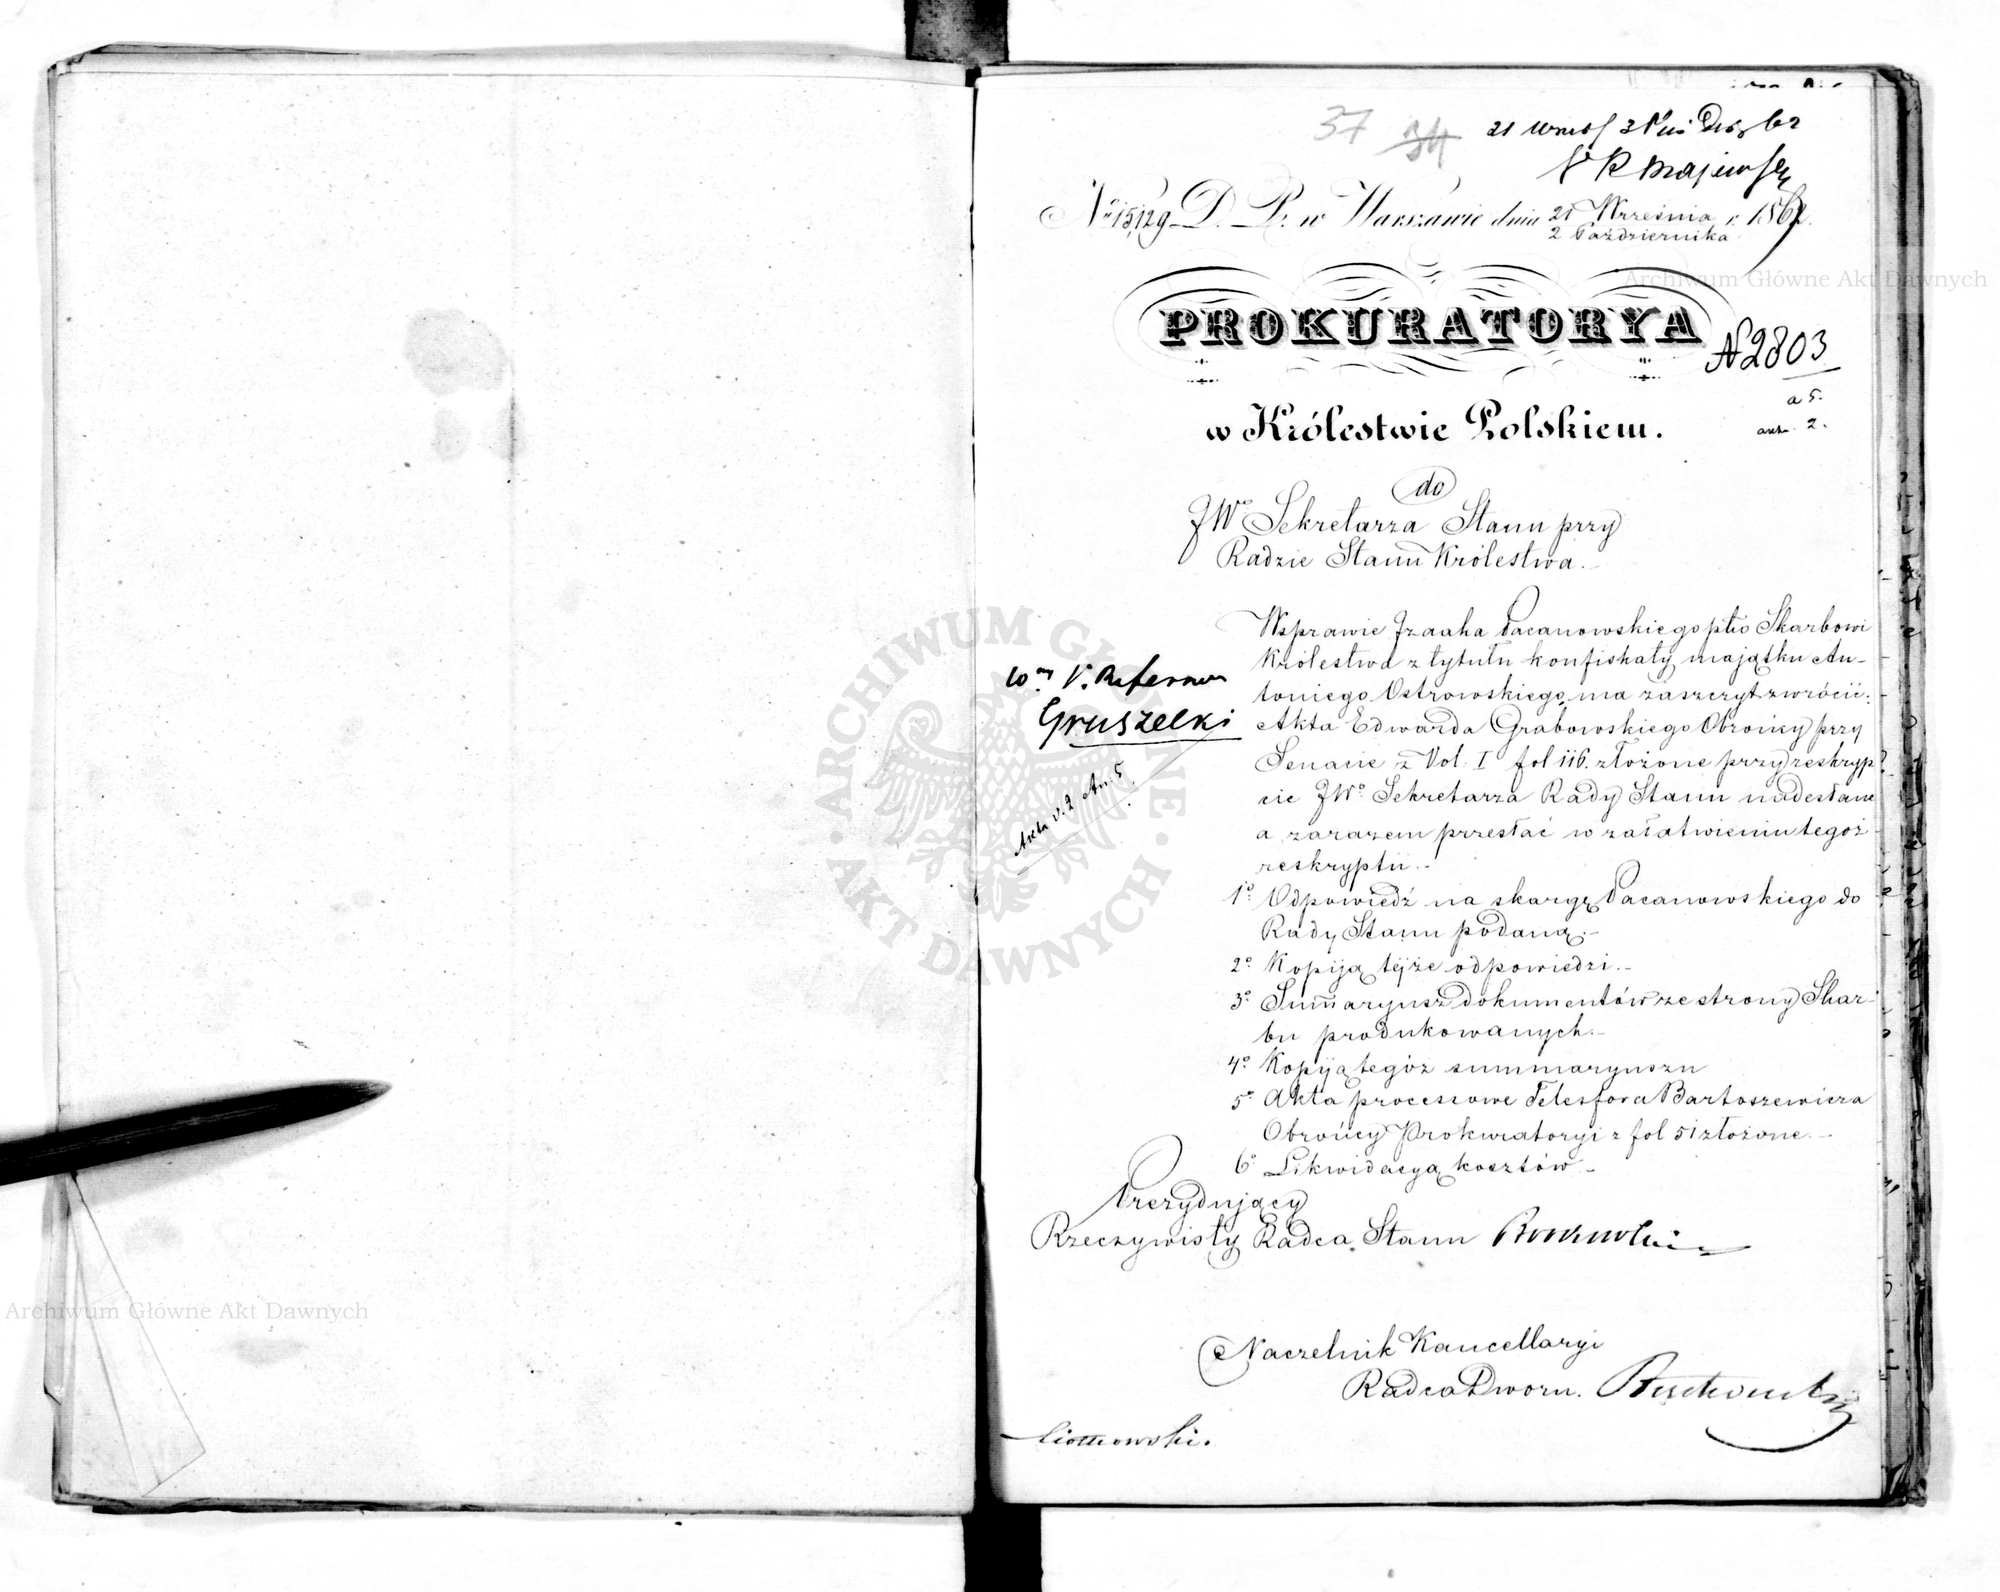 37 34
21 Wrześ 3 Paź 62
Majewski
No 15,129 D. P. w Warszawie dnia 21 Września r. 1862.
2 Października
PROKURATORYA
N 2803
a 5.
2.
w Królestwie Polskiem.
do
JWo Sekretarza Stanu przy
Radzie Stanu Królestwa.
Wsprawie Izaaka Pacanowskiego pko Skarbowi
Królestwa z tytułu konfiskaty majątku An-
toniego Ostrowskiego, ma zaszczyt zwrócić:
Akta Edwarda Grabowskiego Obrońcy przy
Senacie z Vol. I fol 116. złożone przy reskryp-
cie JWo Sekretarza Rady Stanu nadesłane
a zarazem przesłać w załatwieniu tegoż
reskryptu.
1o Odpowiedź na skargę Pacanowskiego do
Rady Stanu podaną.
2o Kopiją tejże odpowiedzi.
3o Summaryusz dokumentów ze strony Skar-
bu produkowanych.
4o Kopiją tegóż summaryuszu
5o Akta processowe Telesfora Bartoszewicza
Obrońcy Prokuratoryi z fol 51 złożone.
6o Likwidacyą kosztów
Prezydujący
Rzeczywisty Radca Stanu
Naczelnik Kancellaryi
Radca Dworu.
V. Referen
Gruszelki
Akta v. 2 An: 5
Archiwum Główne Akt Dawnych
ARCHIWUM GŁÓWNE
AKT DAWNYCH
Archiwum Główne Akt Dawnych